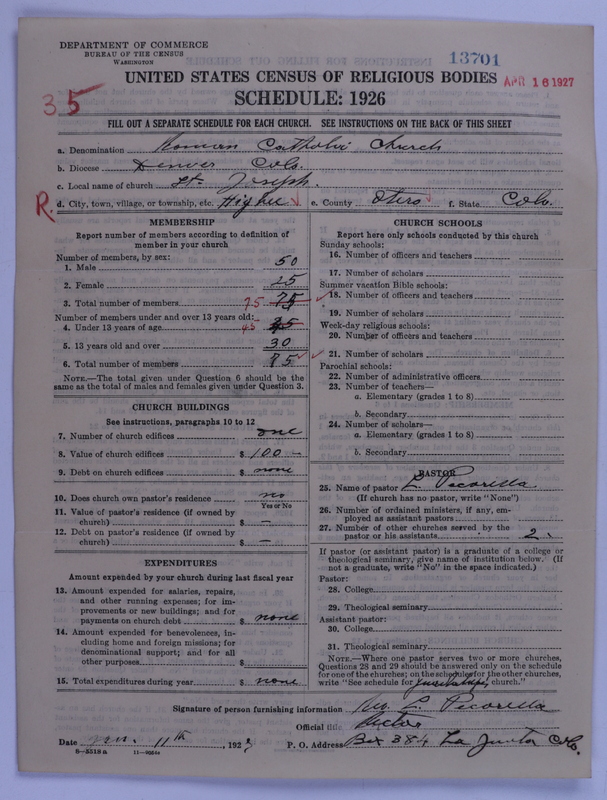 DEPARTMENT OF COMMERCE
BUREAU OF THE CENSUS
WASHINGTON
13701
UNITED STATES CENSUS OF RELIGIOUS BODIES
APR 16 1927
35
SCHEDULE: 1926
FILL OUT A SEPARATE SCHEDULE FOR EACH CHURCH. SEE INSTRUCTIONS ON THE BACK OF THIS SHEET
a. Denomination Roman Catholic Church
b. Diocese Denver Colo.
c. Local name of church St. Joseph.
R.
d. City, town, village, or township, etc. Higbee e. County Otero f. State Colo.
MEMBERSHIP
Report number of members according to definition of
member in your church
Number of members, by sex:
1. Male 50
2. Female 25
3. Total number of members 75 75
Number of members under and over 13 years old:
4. Under 13 years of age 45
5. 13 years old and over 30
6. Total number of members 75
NOTE.—The total given under Question 6 should be the
same as the total of males and females given under Question 3.
CHURCH BUILDINGS
See instructions, paragraphs 10 to 12
7. Number of church edifices one
8. Value of church edifices $ 100 —
9. Debt on church edifices $ none
10. Does church own pastor's residence no
Yes or No
11. Value of pastor's residence (if owned by
church) $ —
12. Debt on pastor's residence (if owned by
church) $ —
EXPENDITURES
Amount expended by your church during last fiscal year
13. Amount expended for salaries, repairs,
and other running expenses; for im-
provements or new buildings; and for
payments on church debt $ none
14. Amount expended for benevolences, in-
cluding home and foreign missions; for
denominational support; and for all
other purposes $
15. Total expenditures during year $ none
CHURCH SCHOOLS
Report here only schools conducted by this church
Sunday schools:
16. Number of officers and teachers
17. Number of scholars
Summer vacation Bible schools:
18. Number of officers and teachers
19. Number of scholars
Week-day religious schools:
20. Number of officers and teachers
21. Number of scholars
Parochial schools:
22. Number of administrative officers
23. Number of teachers—
a. Elementary (grades 1 to 8)
b. Secondary
24. Number of scholars—
a. Elementary (grades 1 to 8)
b. Secondary
PASTOR
25. Name of pastor L. Pecorella.
(If church has no pastor, write "None")
26. Number of ordained ministers, if any, em-
ployed as assistant pastors
27. Number of other churches served by the
pastor or his assistants 2.
If pastor (or assistant pastor) is a graduate of a college or
theological seminary, give name of institution below. (If
not a graduate, write "No" in the space indicated.)
Pastor:
28. College
29. Theological seminary
Assistant pastor:
30. College
31. Theological seminary
NOTE.—Where one pastor serves two or more churches,
Questions 28 and 29 should be answered only on the schedule
for one of the churches; on the schedules for the other churches,
write "See schedule for church."
Signature of person furnishing information Rev. L. Pecorella
Official title Rector
Date 11th, 192 P. O. Address Box 384 La Junta Colo.
8—5518 a